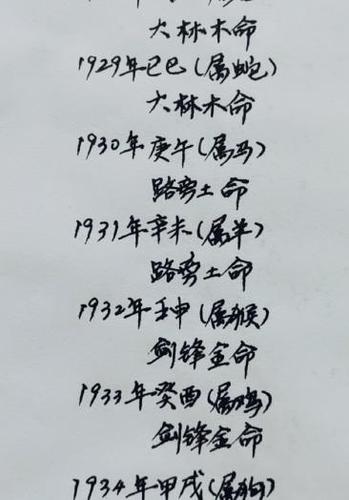 大林木命
1929年已巳(属蛇)
大林木命
1930年庚午(属马)
路旁土命
1931年辛未(属羊)
路旁土命
1932年壬申(属猴)
剑锋金命
1933年癸酉(属鸡)
剑锋金命
1934年甲戌(属狗)